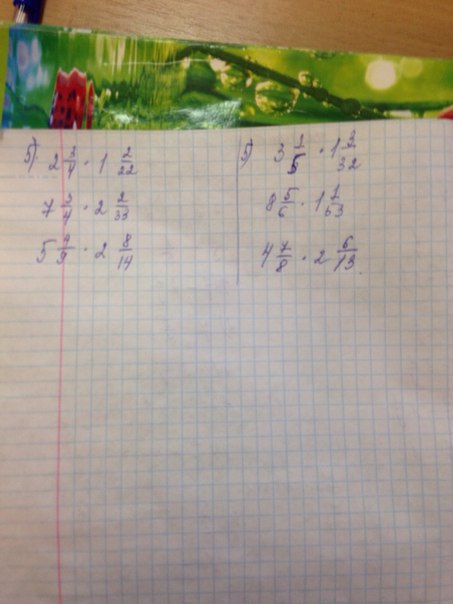 5) 2 3/4 · 1 2/22
7 3/4 · 2 2/33
5 4/9 · 2 8/14
5) 3 1/5 · 1 3/32
8 5/6 · 1 1/53
4 7/8 · 2 6/13